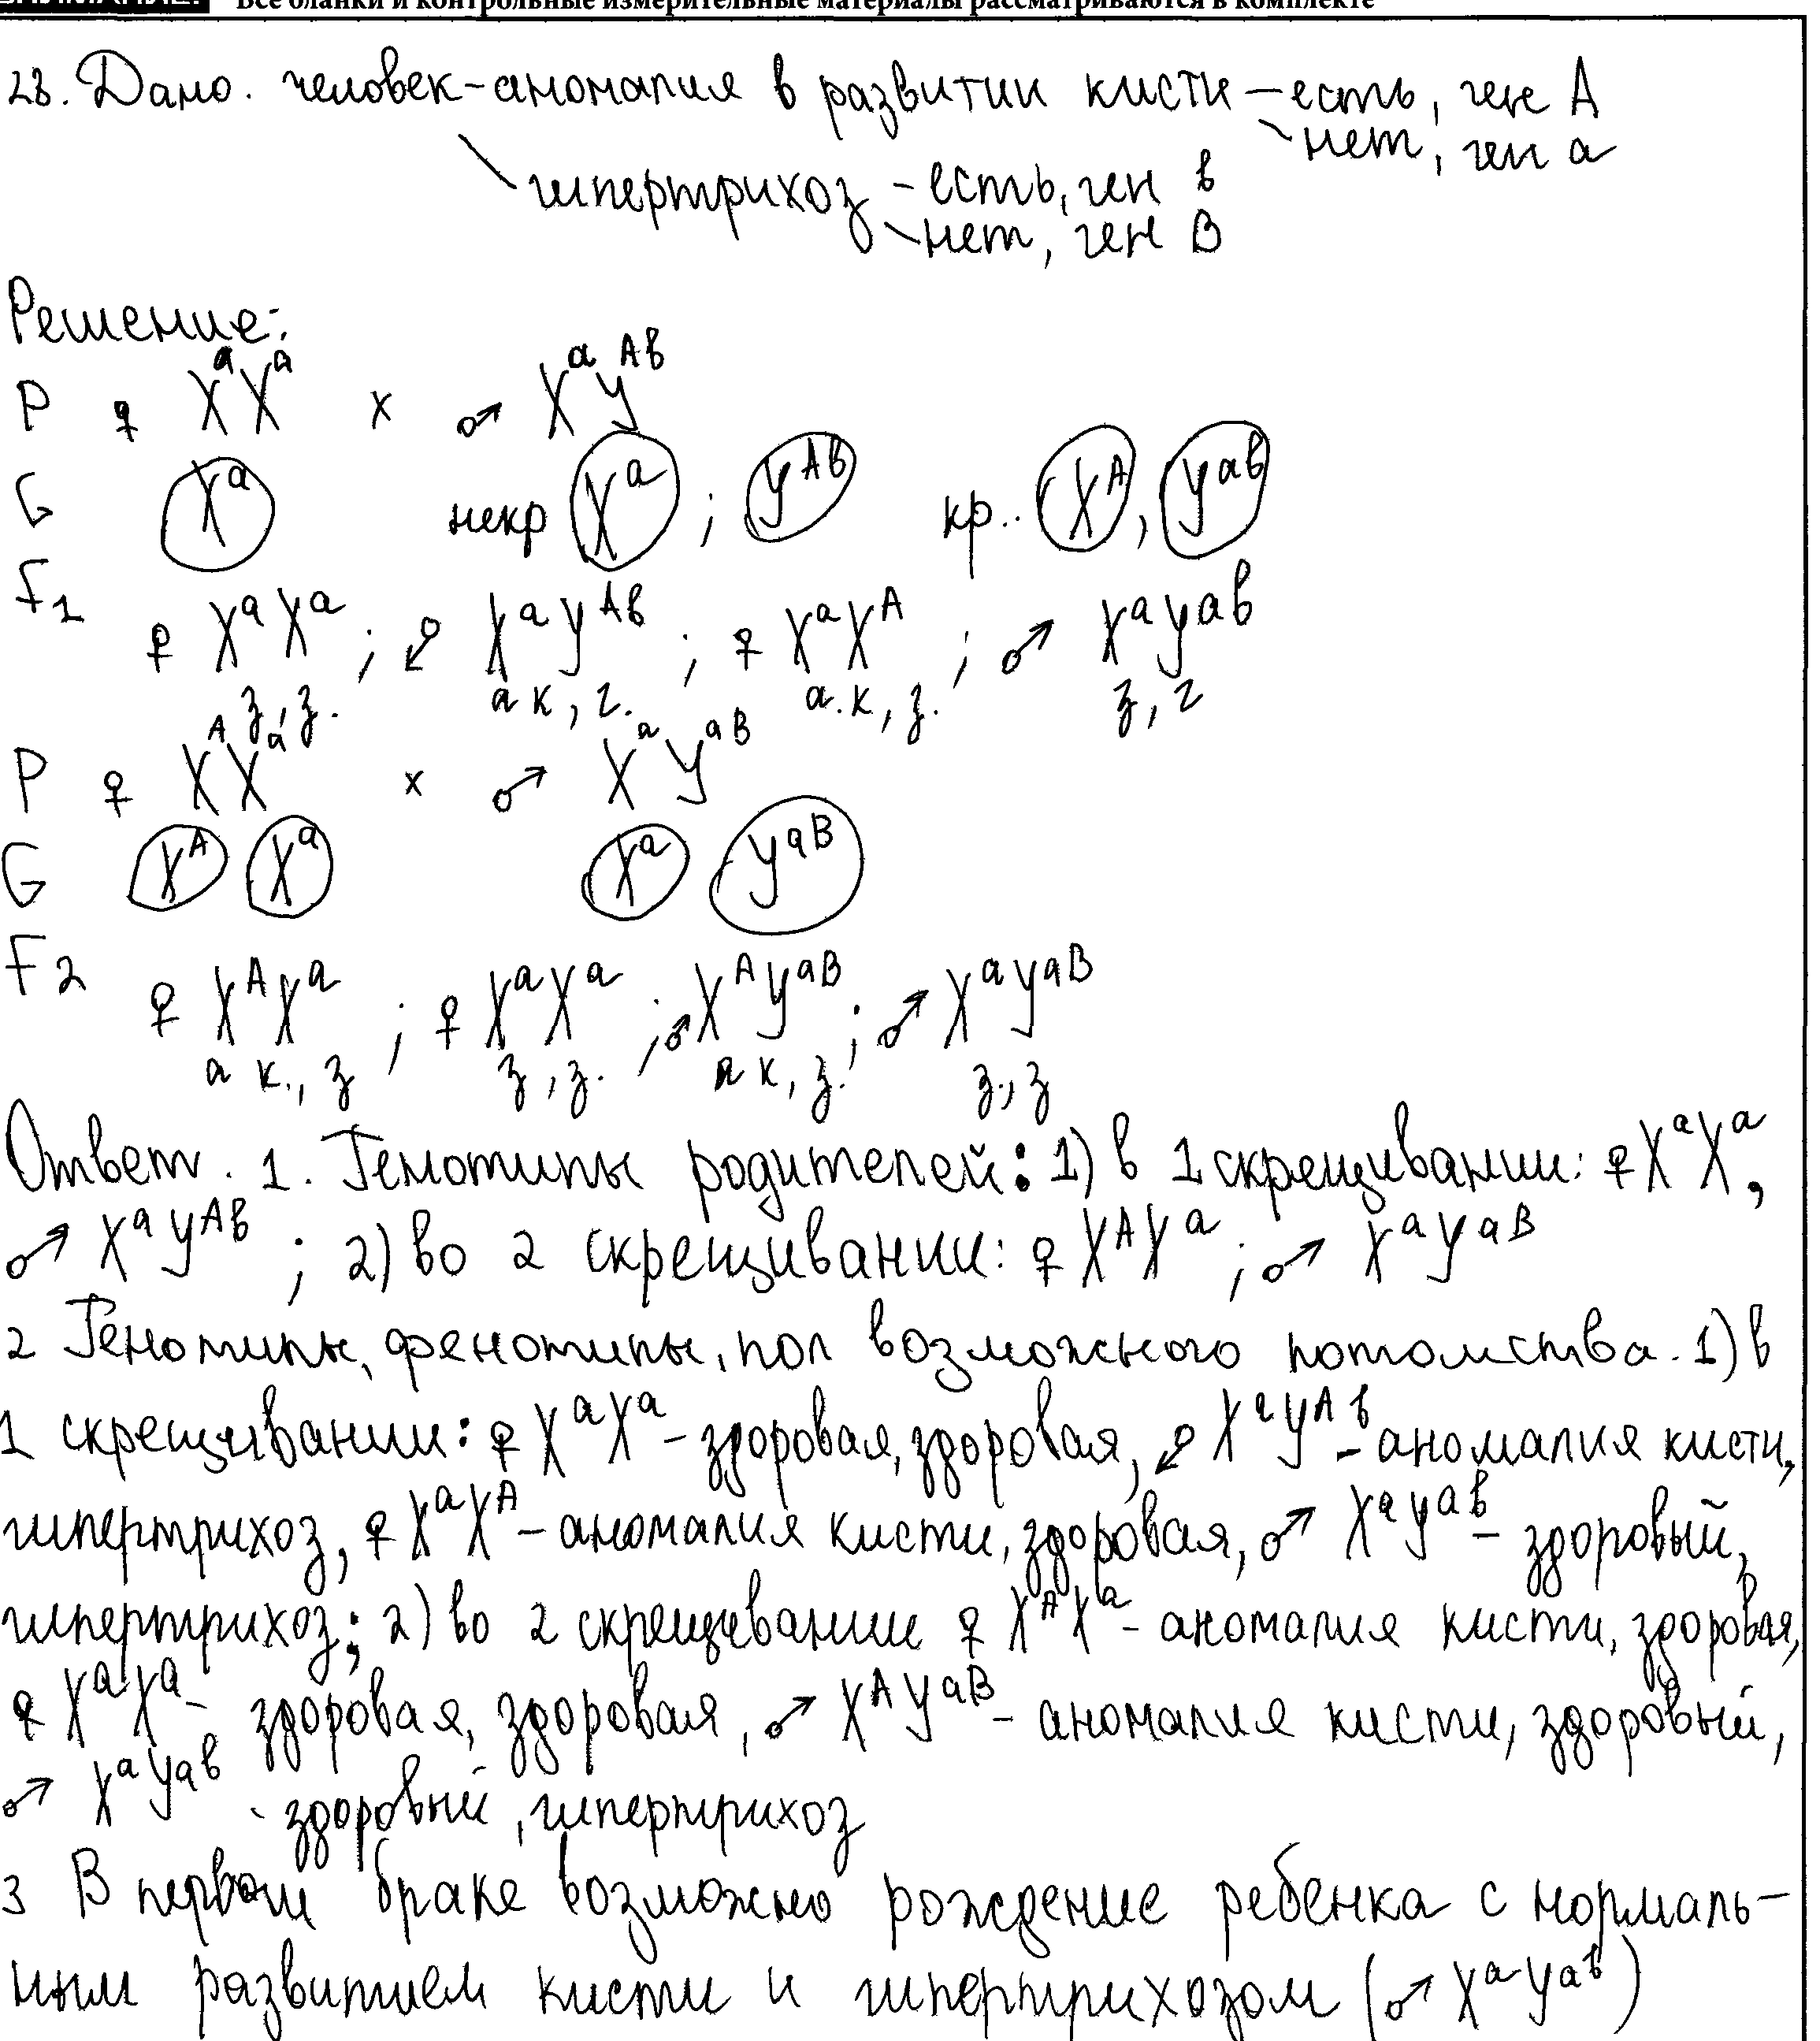 Все бланки и контрольные измерительные материалы рассматриваются в комплекте
28. Дано. человек-аномалия в развитии кисти – есть, ген А
нет, ген а
гипертрихоз – есть, ген в
нет, ген В
Решение:
P ♀ XᵃXᵃ x ♂ XᵃYᴬᵇ
G Xᵃ некр Xᵃ ; Yᴬᵇ кр.. Xᴬ, Yᵃᵇ
F₁ ♀ XᵃXᵃ ; ♂ XᵃYᴬᵇ ; ♀ XᵃXᴬ ; ♂ XᵃYᵃᵇ
з,з. а к, г. а.к, з. з, г
P ♀ XᴬXᵃ x ♂ XᵃYᵃᴮ
G Xᴬ Xᵃ Xᵃ Yᵃᴮ
F2 ♀ XᴬXᵃ ; ♀ XᵃXᵃ ; ♂ XᴬYᵃᴮ ; ♂ XᵃYᵃᴮ
а к., з з, з. а к, з. з., з
Ответ. 1. Генотипы родителей: 1) в 1 скрещивании: ♀ XᵃXᵃ,
♂ XᵃYᴬᵇ ; 2) во 2 скрещивании: ♀ XᴬXᵃ ; ♂ XᵃYᵃᴮ
2 Генотипы, фенотипы, пол возможного потомства. 1) в
1 скрещивании: ♀ XᵃXᵃ – здоровая, здоровая, ♂ XᵃYᴬᵇ – аномалия кисти,
гипертрихоз, ♀ XᵃXᴬ – аномалия кисти, здоровая, ♂ XᵃYᵃᵇ – здоровый,
гипертрихоз; 2) во 2 скрещивание ♀ XᴬXᵃ – аномалия кисти, здоровая,
♀ XᵃXᵃ – здоровая, здоровая, ♂ XᴬYᵃᴮ – аномалия кисти, здоровый,
♂ XᵃYᵃᵇ - здоровый, гипертрихоз
3 В первом браке возможно рождение ребенка с нормаль-
ным развитием кисти и гипертрихозом (♂ XᵃYᵃᵇ)